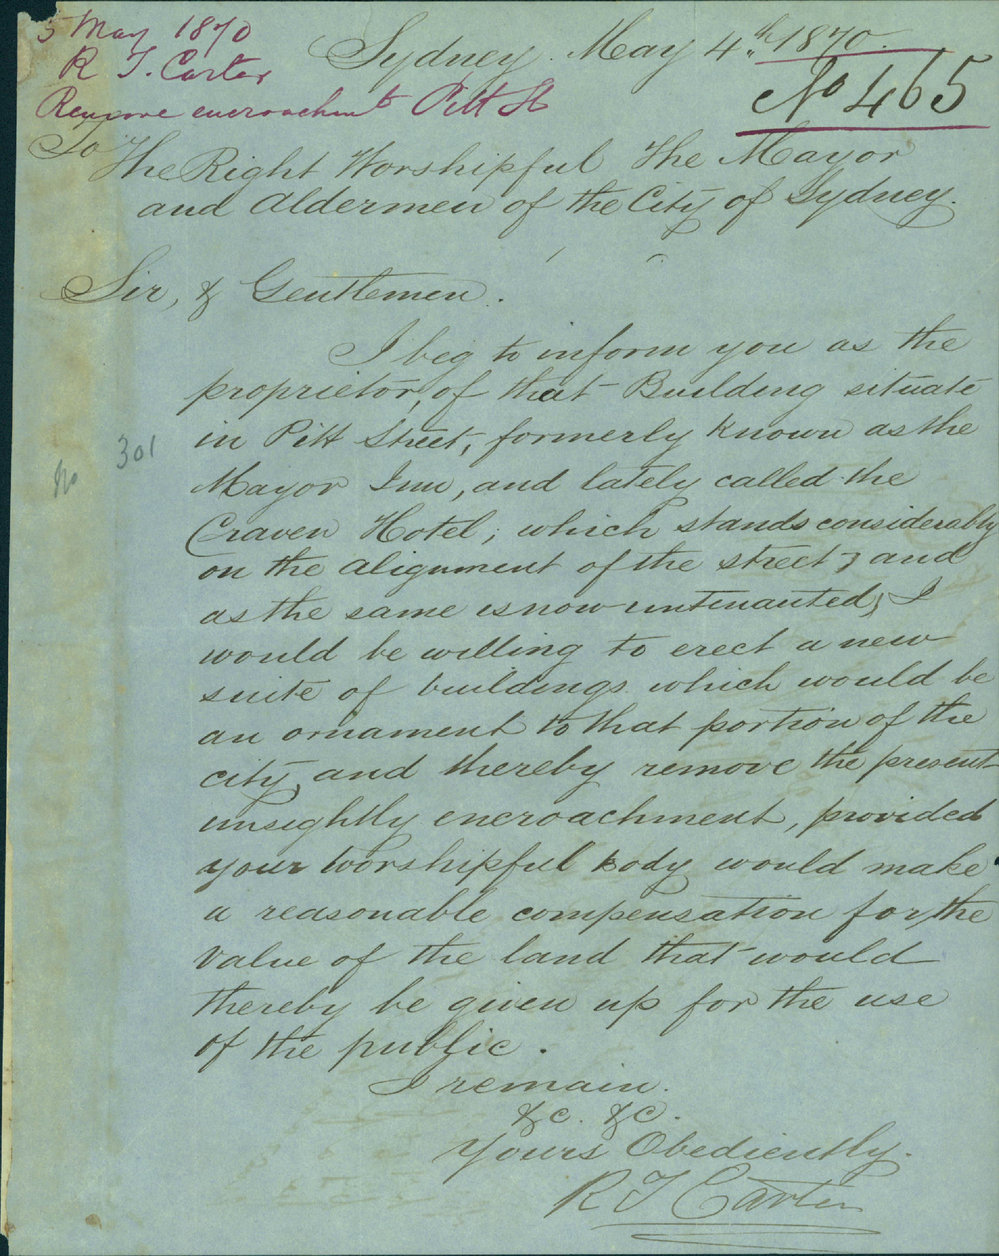 5 May 1870
R T. Carter
Remove encroachmt Pitt St
Sydney. May 4th 1870.
No 465
To
The Right Worshipful The Mayor
and Aldermen of the City of Sydney.
Sir, & Gentlemen.
I beg to inform you as the
proprietor, of that Building situate
in Pitt Street, formerly known as the
Mayor Inn, and lately called the
Craven Hotel; which stands considerably
on the alignment of the street; and
as the same is now untenanted, I
would be willing to erect a new
suite of buildings which would be
an ornament to that portion of the
city, and thereby remove the present
unsightly encroachment, provided
your Worshipful body would make
a reasonable compensation for the
value of the land that would
thereby be given up for the use
of the public.
I remain.
&c. &c.
Yours Obediently.
R T Carter
No 301